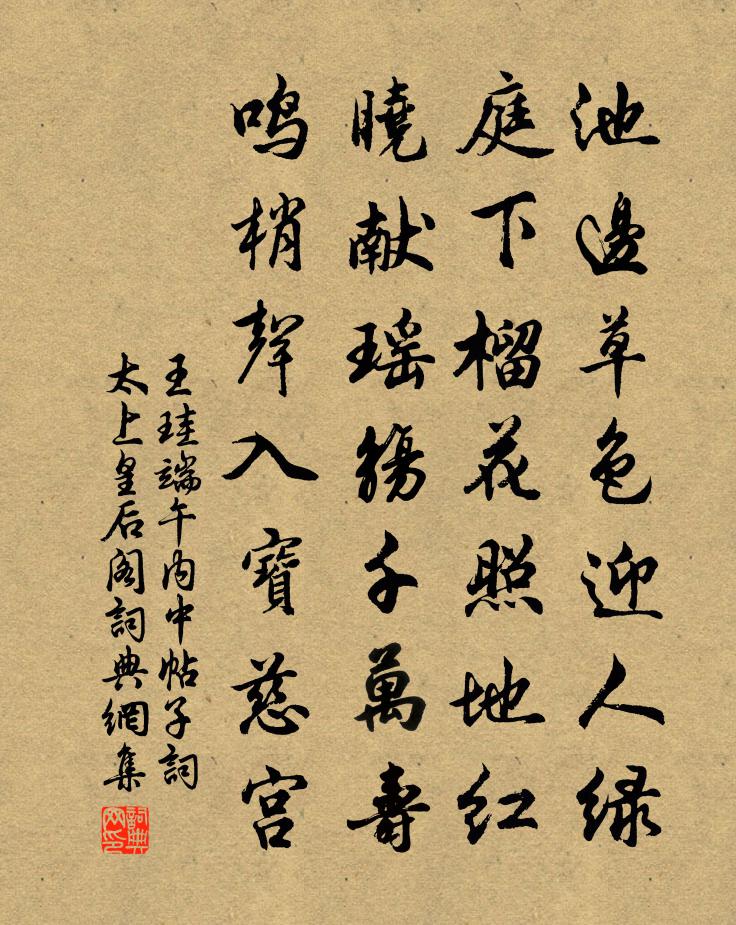 池邊草色迎人绿
庭下榴花照地红
曉献瑶觴千萬壽
鸣梢聲入寶慈宫
王珪端午内中帖子詞
太上皇后阁詞典網集
詞典
网印